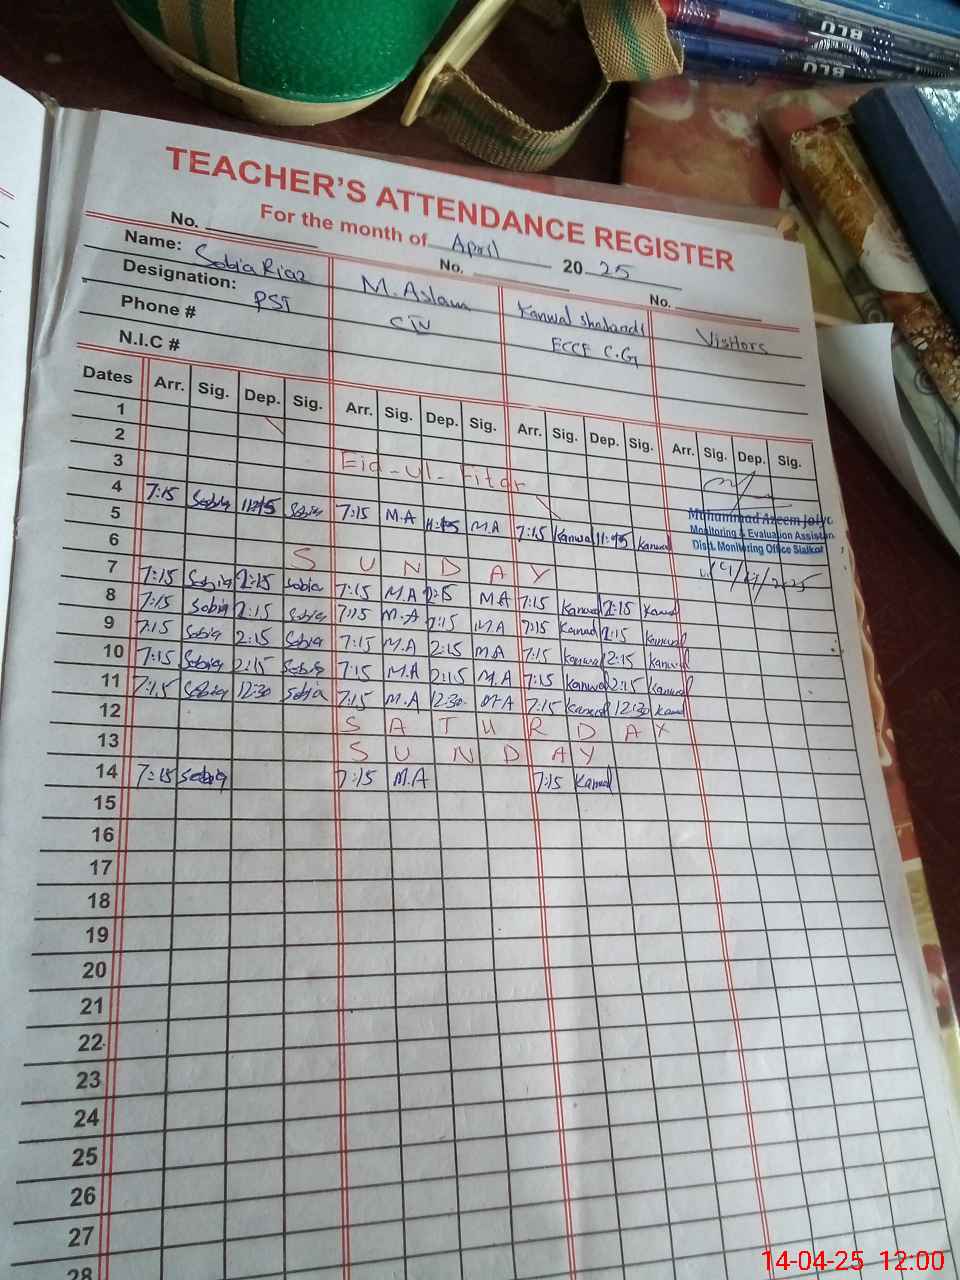 BLU
BLU
TEACHER'S ATTENDANCE REGISTER
For the month of April 2025
No. No. No.
Name: Sobia Riaz M. Aslam Kanwal Shahzadi Visitors
Designation: PST CIV ECCE C.G
Phone #
N.I.C #
Dates Arr. Sig. Dep. Sig. Arr. Sig. Dep. Sig. Arr. Sig. Dep. Sig. Arr. Sig. Dep. Sig.
1
2
3 Eid-ul-Fitar
4 7:15 Sobia 11:45 Sobia 7:15 M.A 11:45 M.A 7:15 Kanwal 11:45 Kanwal
Muhammad Azeem
5 Monitoring & Evaluation Assistant
6 S U N D A Y Distt. Monitoring Office Sialkot
7 7:15 Sobia 2:15 Sobia 7:15 M.A 2:15 M.A 7:15 Kanwal 2:15 Kanwal
8 7:15 Sobia 2:15 Sobia 7:15 M.A 2:15 M.A 7:15 Kanwal 2:15 Kanwal
9 7:15 Sobia 2:15 Sobia 7:15 M.A 2:15 M.A 7:15 Kanwal 2:15 Kanwal
10 7:15 Sobia 2:15 Sobia 7:15 M.A 2:15 M.A 7:15 Kanwal 2:15 Kanwal
11 7:15 Sobia 12:30 Sobia 7:15 M.A 12:30 M.A 7:15 Kanwal 12:30 Kanwal
12 S A T U R D A Y
13 S U N D A Y
14 7:15 Sobia 7:15 M.A 7:15 Kanwal
15
16
17
18
19
20
21
22
23
24
25
26
27
28
14-04-25 12:00